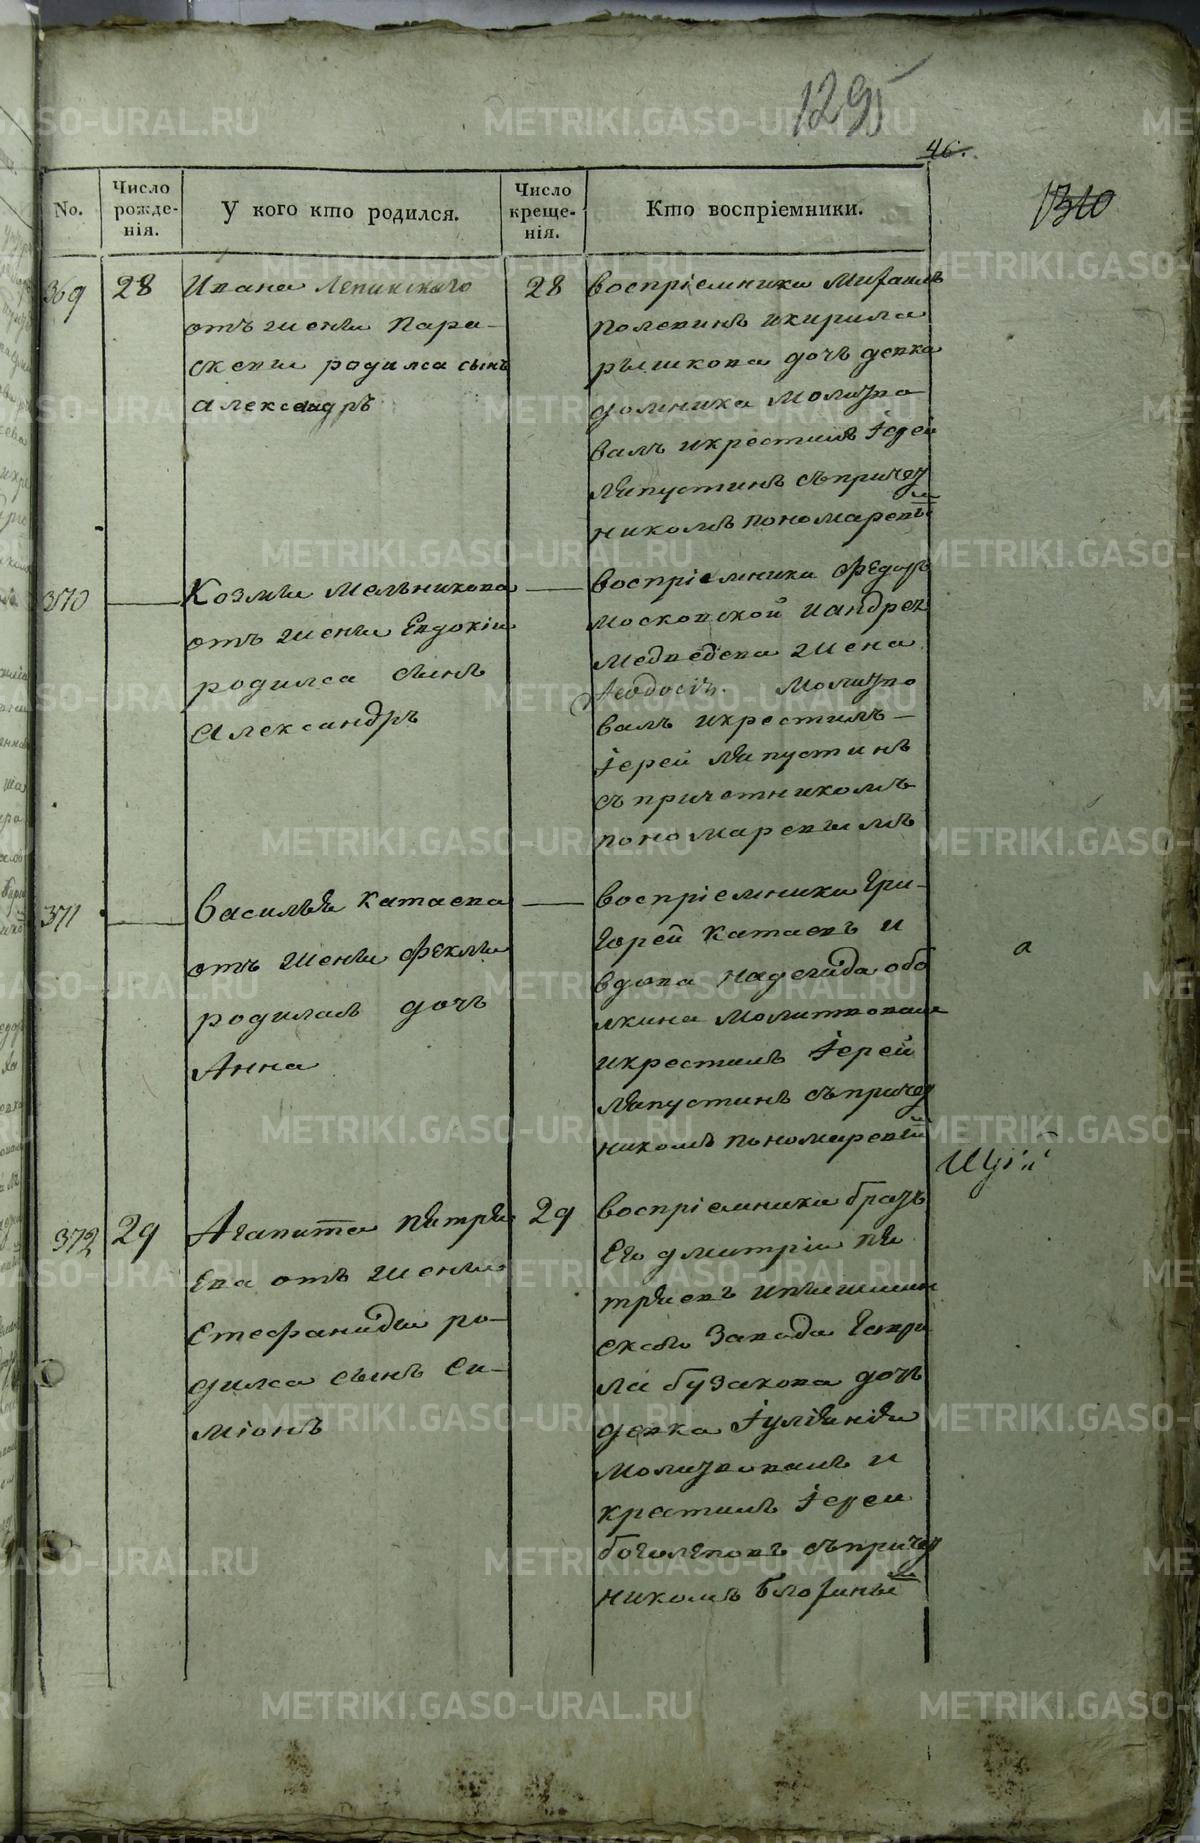 1295
46.
1310
No.
Число рожде-нія.
У кого кто родился.
Число креще-нія.
Кто воспріемники.
369
28
Ивана
отъ жены Пара-
скевы родился сынъ
александръ
28
воспріемники Михаилъ
Полевинъ и кирила
рышкова дочь девка
домника Молитво
валъ и крестилъ Іерей
Ляпустинъ съ причет
никомъ пономаревы
м
370
Козмы Мельникова
отъ жены Евдокіи
родился сынъ
Александръ
воспріемники Федоръ
Московской и андрея
Медведева жена
Феодосія. Молитво
валъ и крестилъ
Іерей Ляпустинъ
съ причетникомъ
пономаревымъ
371
Василья катаева
отъ жены Феклы
родилась дочь
Анна
воспріемники Гри-
горей Катаевъ и
вдова надежда обо
лкина Молитвовалъ
и крестилъ Іерей
Ляпустинъ съ причет
никомъ пономаревы
м
а
372
29
Агапита Пятрыя
ева отъ жены
Стефаниды ро-
дился сынъ Си-
міонъ
29
воспріемники братъ
Его дмитріи Пя
трыевъ
скаго Завода Гаври
ла бузакова дочь
девка Іуліянія
Молитвовалъ и
крестилъ Іереи
боголеповъ съ причет
никомъ Блохины
м
METRIKI.GASO-URAL.RU